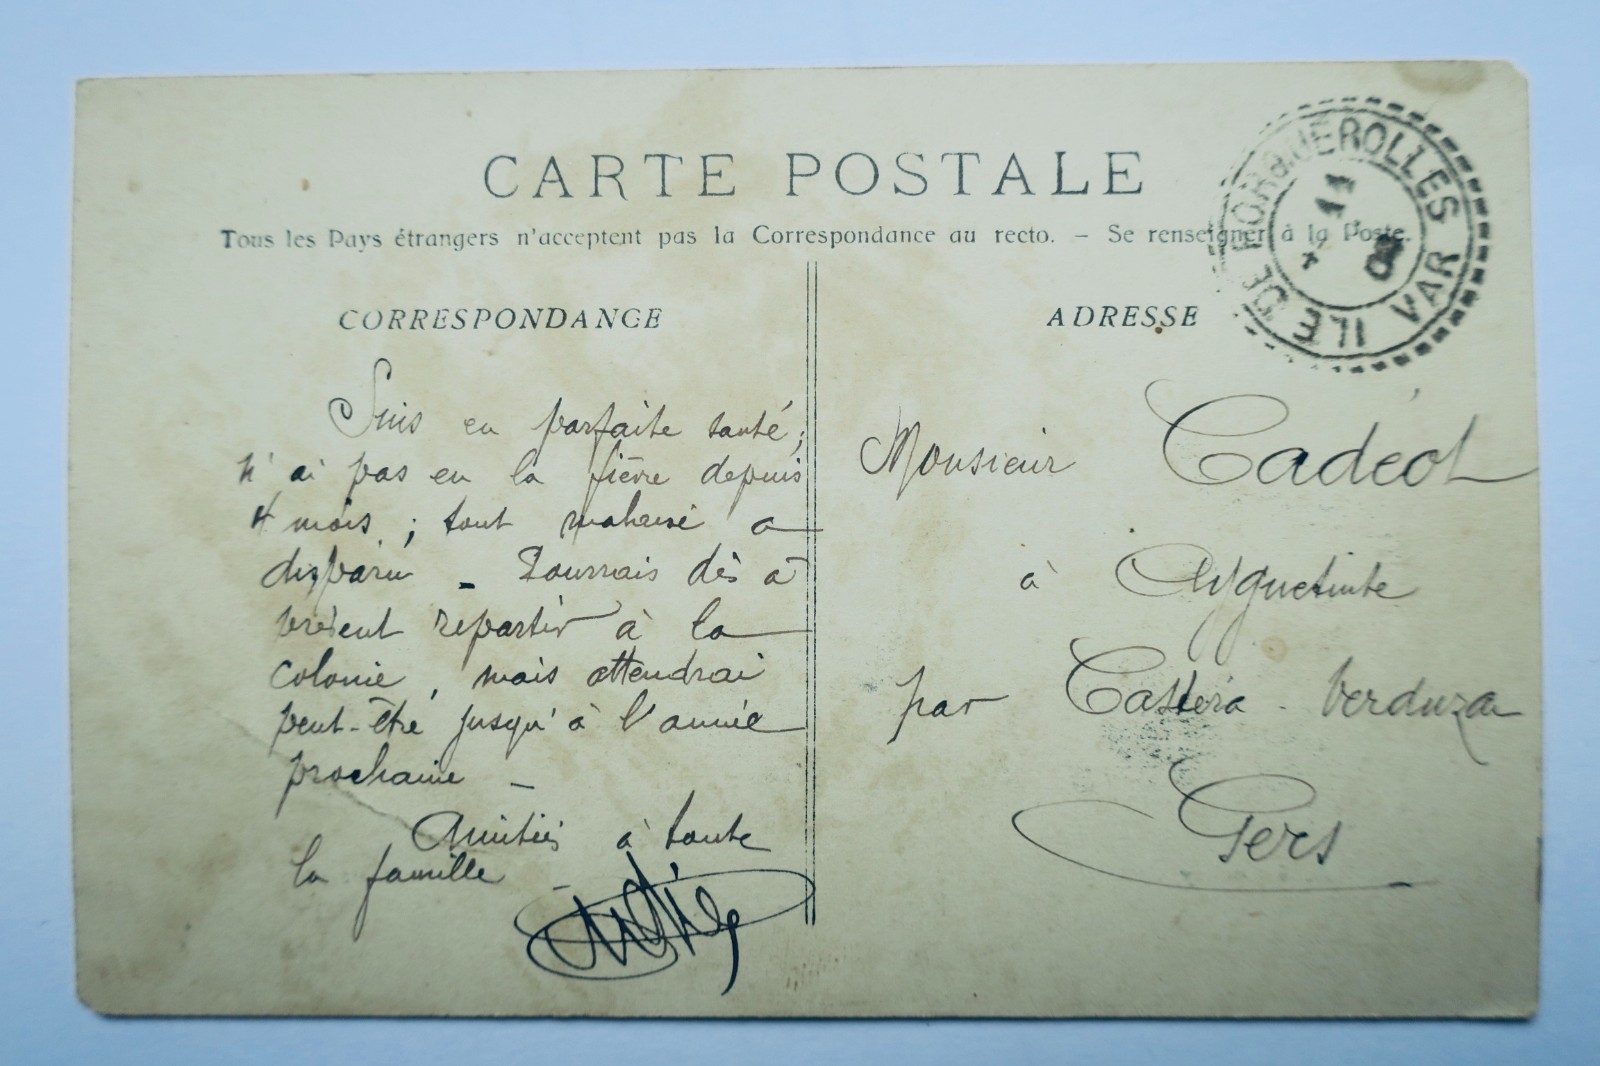 CARTE POSTALE
Tous les Pays étrangers n'acceptent pas la Correspondance au recto. – Se renseigner à la Poste.
ILE DE PORQUEROLLES VAR
11
CORRESPONDANCE
Suis en parfaite santé;
n'ai pas eu la fièvre depuis
4 mois; tout malaise a
disparu – Pourrais dès à
présent repartir à la
colonie, mais attendrai
peut-être jusqu'à l'année
prochaine –
Amitiés à toute
la famille –
ADRESSE
Monsieur Cadéot
à Ayguetinte
par Castéra-Verduzan
Gers